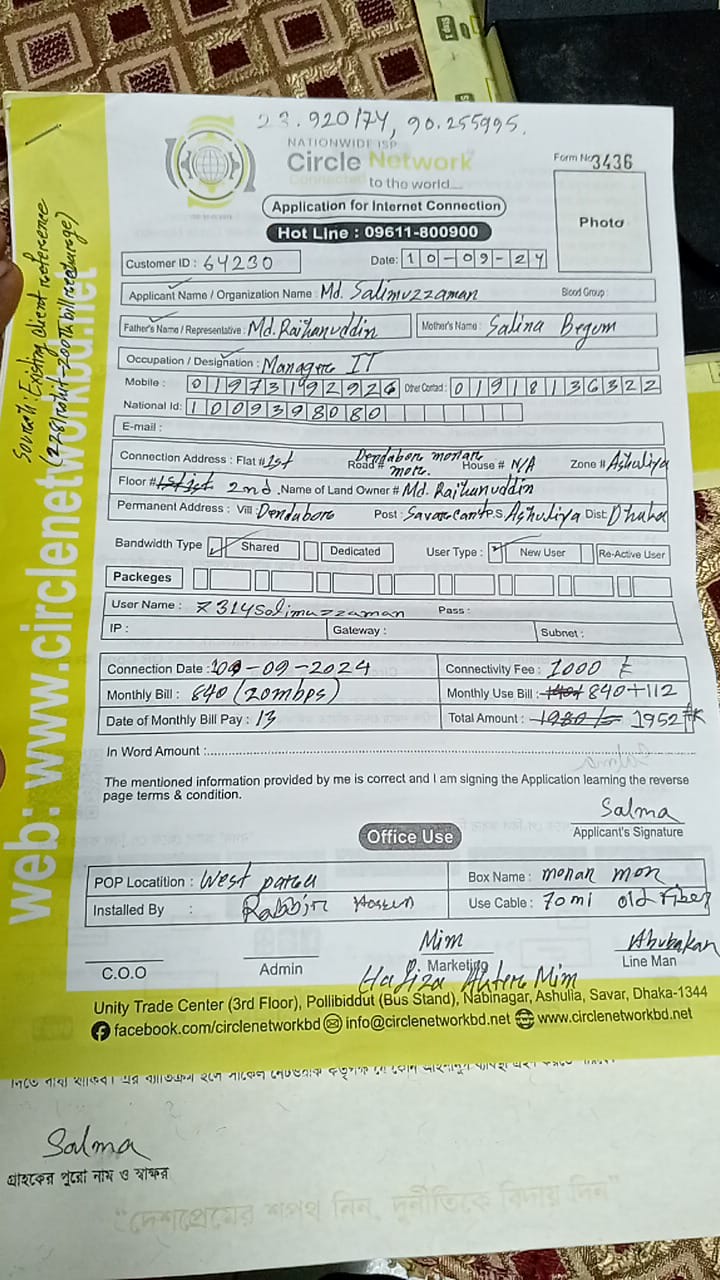 23.920174, 90.255995.
NATIONWIDE ISP
Circle Network
Connected
to the world...
Form No 3436
Application for Internet Connection
Hot Line : 09611-800900
Photo
Customer ID : 64230
Date: 10-09-24
Applicant Name / Organization Name : Md. Salimuzzaman Blood Group :
Father's Name / Representative : Md. Raihanuddin Mother's Name : Salina Begum
Occupation / Designation : Manager IT
Mobile : 01973192926 Other Contact : 01918136322
National Id: 1009398080
E-mail :
Connection Address : Flat # 1st Road # Dendabor monar more. House # N/A Zone # Ashuliya
Floor # 2nd. Name of Land Owner # Md. Raihanuddin
Permanent Address : Vill Dendabor Post : Savar cant P.S Ashuliya Dist: Dhaka
Bandwidth Type Shared Dedicated User Type : New User Re-Active User
Packeges
User Name : Z314Salimuzzaman Pass :
IP : Gateway : Subnet :
Connection Date : 10-09-2024 Connectivity Fee : 1000 
Monthly Bill : 840 (20mbps) Monthly Use Bill : 840+112
Date of Monthly Bill Pay : 13 Total Amount : 1980/= 1952 tk
In Word Amount :
The mentioned information provided by me is correct and I am signing the Application learning the reverse
page terms & condition.
Salma
Applicant's Signature
Office Use
POP Locatition : West para Box Name : monar mor
Installed By : Rabbir Hossen Use Cable : 70mi old fiber
C.O.O
Admin
Mim
Marketing
Hafiza Akter Mim
Abubakar
Line Man
Unity Trade Center (3rd Floor), Pollibiddut (Bus Stand), Nabinagar, Ashulia, Savar, Dhaka-1344
facebook.com/circlenetworkbd info@circlenetworkbd.net www.circlenetworkbd.net
web: www.circlenetworkbd.net
Existing client reference
Salma
গ্রাহকের পুরো নাম ও স্বাক্ষর
"দেশপ্রেমের শপথ নিন, দুর্নীতিকে বিদায় দিন"